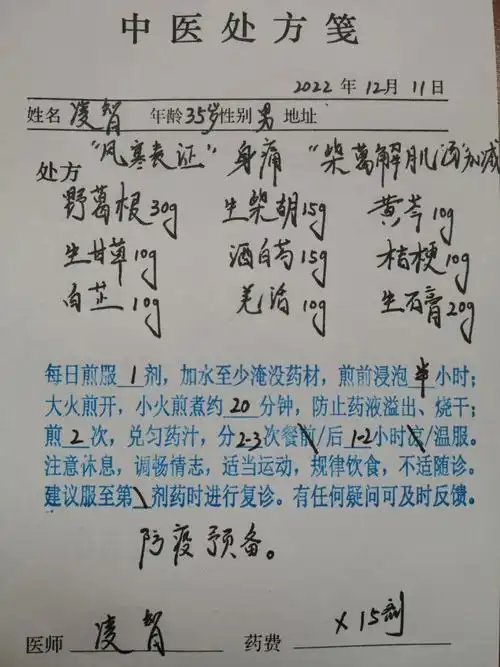 中医处方笺
2022 年 12 月 11 日
姓名 凌智 年龄 35岁 性别 男 地址
处方 "风寒表证" 身痛 "柴葛解肌汤加减
野葛根30g 生柴胡15g 黄芩10g
生甘草10g 酒白芍15g 桔梗10g
白芷10g 羌活10g 生石膏20g
每日煎服 1 剂，加水至少淹没药材，煎前浸泡 半 小时；
大火煎开，小火煎煮约 20 分钟，防止药液溢出、烧干；
煎 2 次，兑匀药汁，分 2-3 次餐前/后 1-2 小时凉/温服。
注意休息，调畅情志，适当运动，规律饮食，不适随诊。
建议服至第 \ 剂药时进行复诊。有任何疑问可及时反馈。
防疫预备。
医师 凌智 药费 ×15剂